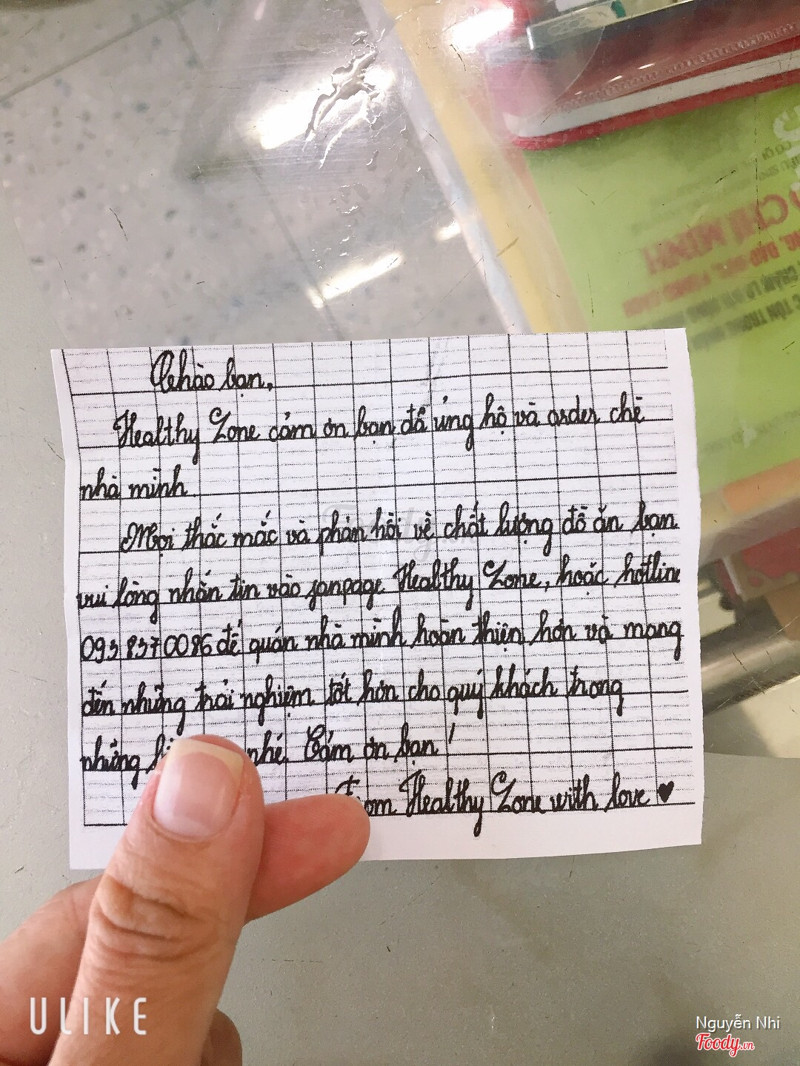 Chào bạn,
Healthy Zone cảm ơn bạn đã ủng hộ và order chè
nhà mình.
Mọi thắc mắc và phản hồi về chất lượng đồ ăn bạn
vui lòng nhắn tin vào fanpage Healthy Zone, hoặc hotline
0938370086 để quán nhà mình hoàn thiện hơn và mang
đến những trải nghiệm tốt hơn cho quý khách trong
những nhé. Cảm ơn bạn!
From Healthy Zone with love ♥
CHÍ MINH
ULIKE
Nguyễn Nhi
Foody.vn